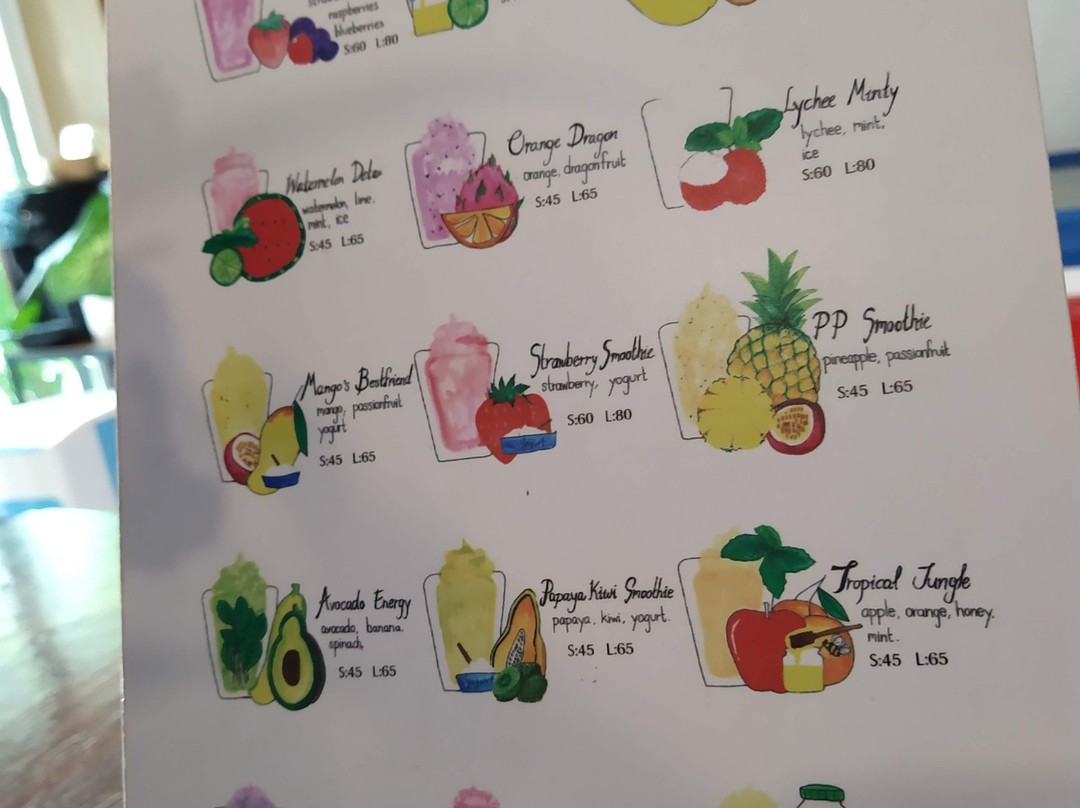 raspberries
blueberries
S:60 L:80
Watermelon Detox
watermelon, lime.
mint, ice
S:45 L:65
Orange Dragon
orange, dragonfruit
S:45 L:65
Lychee Minty
lychee, mint.
ice
S:60 L:80
Mango's Bestfriend
mango, passionfruit
yogurt
S:45 L:65
Strawberry Smoothie
strawberry, yogurt
S:60 L:80
PP Smoothie
pineapple, passionfruit
S:45 L:65
Avocado Energy
avocado, banana.
spinach,
S:45 L:65
Papaya Kiwi Smoothie
papaya, kiwi, yogurt.
S:45 L:65
Tropical Jungle
apple, orange, honey.
mint.
S:45 L:65